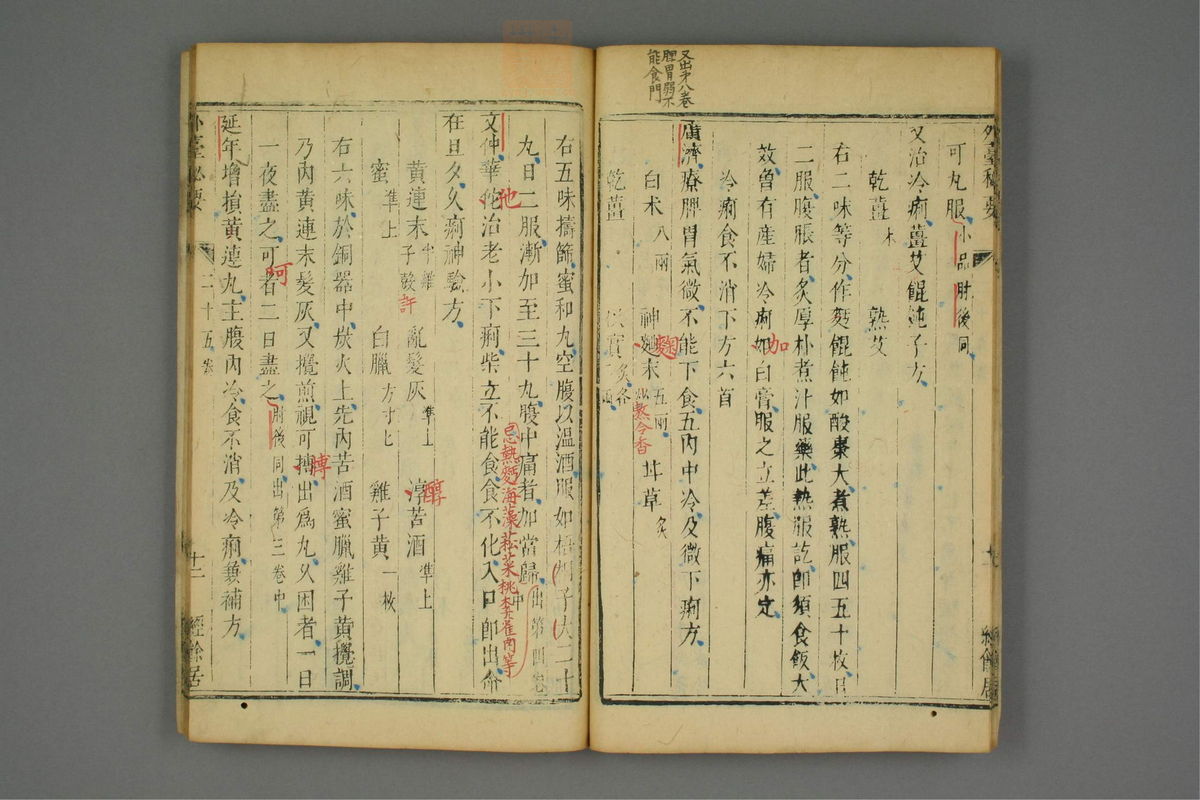 又出第八卷
脾胃弱不
能食門
外臺秘要
可丸服小品肘後同
又治冷痢薑艾餛飩子方
乾薑末 熟艾
右二味等分作麪餛飩如酸棗大煮熟服四五十枚日
二服腹脹者炙厚朴煮汁服藥此熱服訖即須食飯大
效曾有産婦冷痢如白膏服之立差腹痛亦定
加
冷痢食不消下方六首
廣濟療脾胃氣微不能下食五內中冷及微下痢方
白术八兩 神麴末五兩 甘草炙
麴
熬令香
乾薑 枳實炙各二兩
右五味擣篩蜜和丸空腹以溫酒服如梧桐子大二十
丸日二服漸加至三十丸腹中痛者加當歸出第四卷中
忌熱麪海藻菘菜桃李雀肉等
文仲華佗治老小下痢柴立不能食食不化入口即出命
他
在旦夕久痢神驗方
黃連末半雞子殼 亂髮灰準上 淳苦酒準上
許
醇
蜜準上 白臘方寸匕 雞子黃一枚
右六味於銅器中炭火上先內苦酒蜜臘雞子黃攪調
乃內黃連末髮灰又攪煎視可摶出爲丸久困者一日
摶
一夜盡之可者二日盡之肘後同出第三卷中
呵
延年增損黃連丸主腹內冷食不消及冷痢兼補方
外臺秘要 二十五卷 十二 經餘居